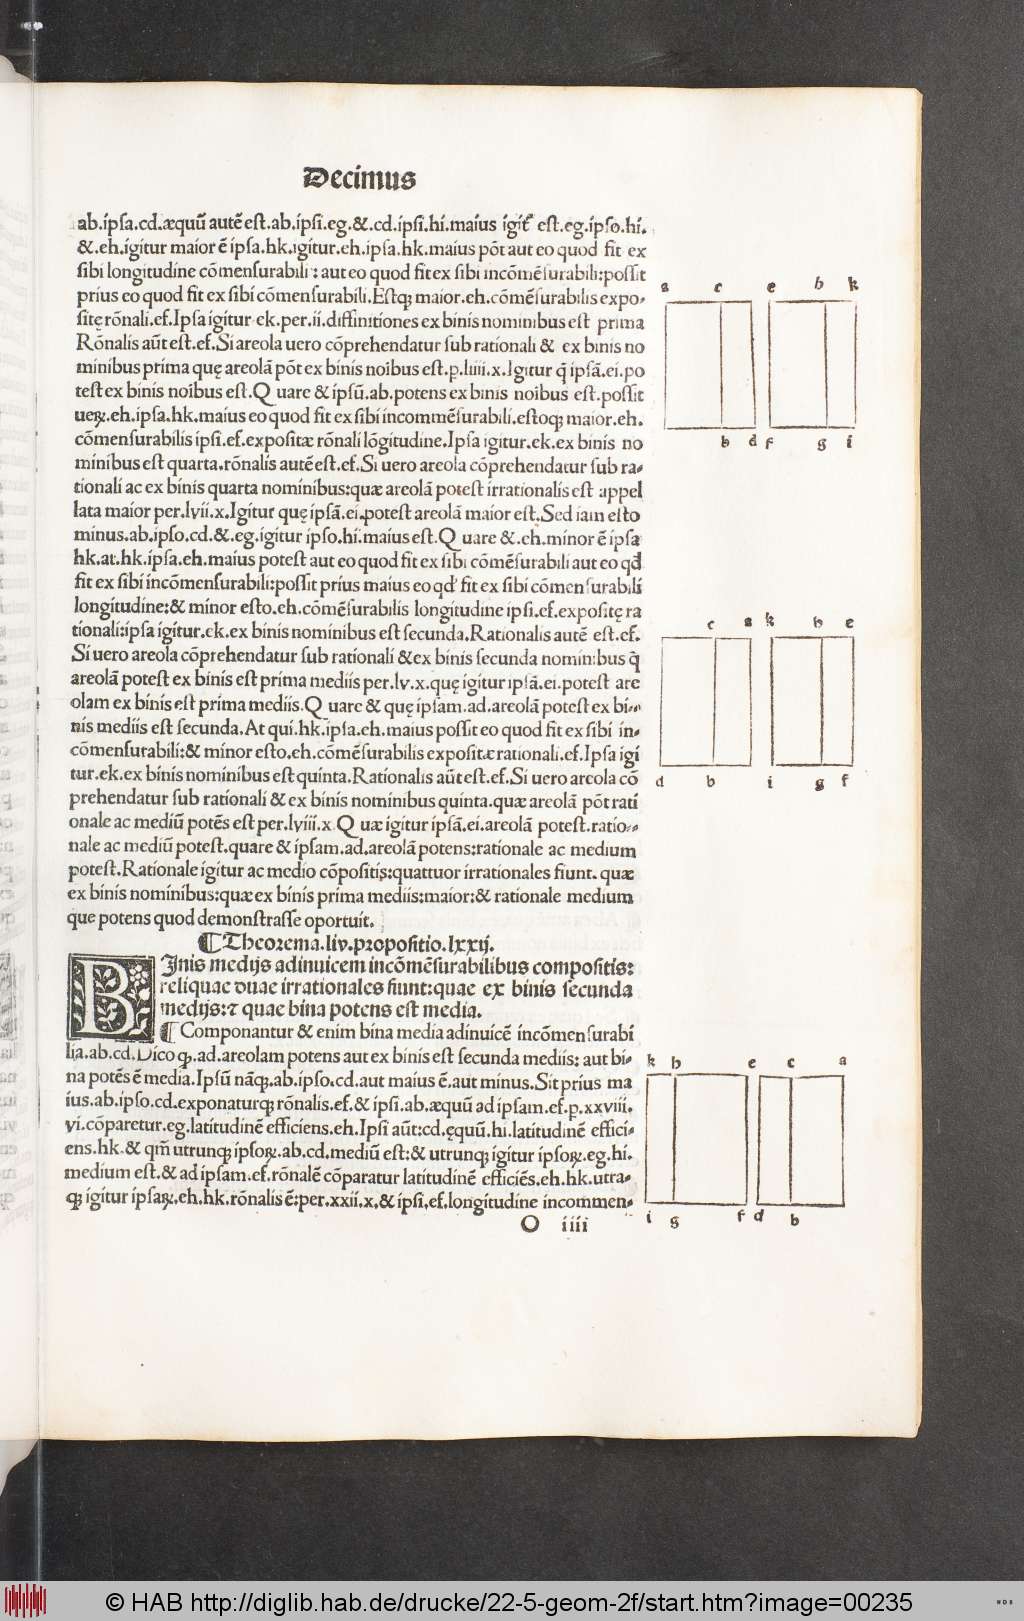 Decimus
ab.ipſa.cd.æquũ autẽ eſt.ab.ipſi.eg.&.cd.ipſi.hi.maius igit̃ eſt.eg.ipſo.hi.
&.eh.igitur maior ẽ ipſa.hk.igitur.eh.ipſa.hk.maius põt aut eo quod fit ex
ſibi longitudine cõmenſurabili: aut eo quod fit ex ſibi incõmẽſurabili:poſſit
prius eo quod fit ex ſibi cõmenſurabili.Eſtqꝫ maior.eh.cõmẽſurabilis expo⸗
ſitę rõnali.ef.Ipſa igitur ek.per.ii.diffinitiones ex binis nominibus eſt prima
Rõnalis aũt eſt.ef.Si areola uero cõprehendatur ſub rationali & ex binis no
minibus prima quę areolã põt ex binis noibus eſt.p.liiii.x.Igitur q̃ ipſã.ei.po
teſt ex binis noibus eſt.Quare & ipſũ.ab.potens ex binis noibus eſt.poſſit
ueꝝ.eh.ipſa.hk.maius eo quod fit ex ſibi incommẽſurabili.eſtoqꝫ maior.eh.
cõmenſurabilis ipſi.ef.expoſitæ rõnali lõgitudine.Ipſa igitur.ek.ex binis no
minibus eſt quarta.rõnalis autẽ eſt.ef.Si uero areola cõprehendatur ſub ra⸗
tionali ac ex binis quarta nominibus:quæ areolã poteſt irrationalis eſt appel
lata maior per.lvii.x.Igitur quę ipſã.ei.poteſt areolã maior eſt.Sed iam eſto
minus.ab.ipſo.cd.&.eg.igitur ipſo.hi.maius eſt.Quare &.eh.minor ẽ ipſa
hk.at.hk.ipſa.eh.maius poteſt aut eo quod fit ex ſibi cõmẽſurabili aut eo qd
fit ex ſibi incõmenſurabili:poſſit prius maius eo qd fit ex ſibi cõmenſurabili
longitudine:& minor eſto.eh.cõmẽſurabilis longitudine ipſi.ef.expoſitę ra
tionali:ipſa igitur.ek.ex binis nominibus eſt ſecunda.Rationalis autẽ eſt.ef.
Si uero areola cõprehendatur ſub rationali & ex binis ſecunda nominibus q̃
areolã poteſt ex binis eſt prima mediis per.lv.x.quę igitur ipſã.ei.poteſt are
olam ex binis eſt prima mediis.Quare & quę ipſam.ad.areolã poteſt ex bi⸗
nis mediis eſt ſecunda.At qui.hk.ipſa.eh.maius poſſit eo quod fit ex ſibi in⸗
cõmenſurabili:& minor eſto.eh.cõmẽſurabilis expoſitæ rationali.ef.Ipſa igi
tur.ek.ex binis nominibus eſt quinta.Rationalis aũt eſt.ef.Si uero areola cõ
prehendatur ſub rationali & ex binis nominibus quinta.quæ areolã põt rati
onale ac mediũ potẽs eſt per.lviii.x.Quæ igitur ipſã.ei.areolã poteſt.ratio⸗
nale ac mediũ poteſt.quare & ipſam.ad.areolã potens:rationale ac medium
poteſt.Rationale igitur ac medio cõpoſitis:quattuor irrationales fiunt.quæ
ex binis nominibus:quæ ex binis prima mediis:maior:& rationale medium
que potens quod demonſtraſſe oportuit.
¶Theorema.liv.propoſitio.lxxij.
BInis medijs adinuicem incõmẽſurabilibus compoſitis:
reliquae duae irrationales fiunt:quae ex binis ſecunda
medijs:⁊ quae bina potens eſt media.
¶Componantur & enim bina media adinuicẽ incõmenſurabi
lia.ab.cd.Dico qꝫ.ad.areolam potens aut ex binis eſt ſecunda mediis: aut bi⸗
na potẽs ẽ media.Ipſũ nãqꝫ.ab.ipſo.cd.aut maius ẽ.aut minus.Sit prius ma
ius.ab.ipſo.cd.exponaturqꝫ rõnalis.ef.& ipſi.ab.æquũ ad ipſam.ef.p.xxviii.
vi.cõparetur.eg.latitudinẽ efficiens.eh.Ipſi aũt:cd.ęquũ.hi.latitudinẽ effici⸗
ens.hk.& qm̃ utrunqꝫ ipſoꝝ.ab.cd.mediũ eſt:& utrunqꝫ igitur ipſoꝝ.eg.hi.
medium eſt.& ad ipſam.ef.rõnalẽ cõparatur latitudinẽ efficiẽs.eh.hk.utra⸗
qꝫ igitur ipſaꝝ.eh.hk.rõnalis ẽ:per.xxii.x.& ipſi.ef.longitudine incommen⸗
O iiii
a c e h k
b d f g i
c a k h e
d b i g f
k h e c a
i g f d b
© HAB http://diglib.hab.de/drucke/22-5-geom-2f/start.htm?image=00235